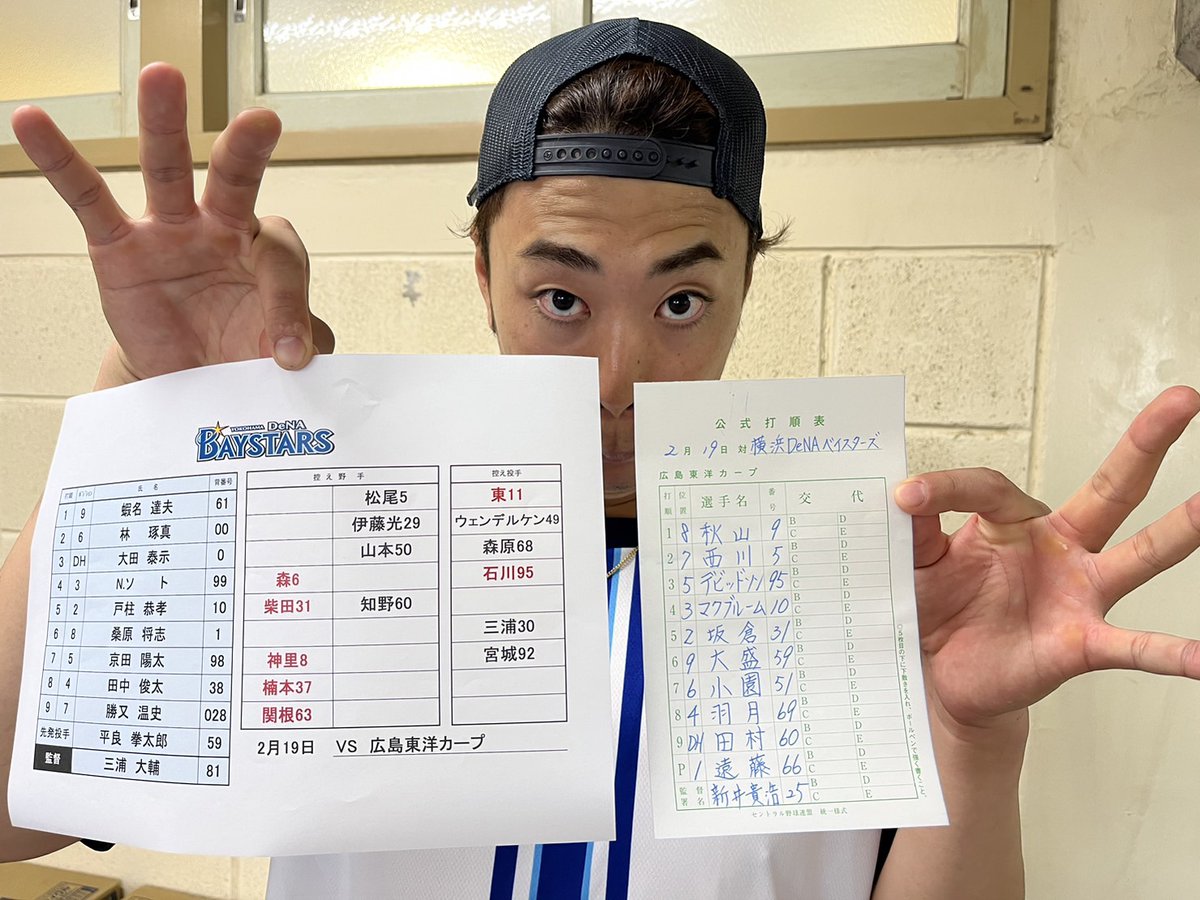 YOKOHAMA DeNA
BAYSTARS
打順 ﾎﾟｼﾞｼｮﾝ 氏名 背番号
1 9 蝦名 達夫 61
2 6 林 琢真 00
3 DH 大田 泰示 0
4 3 N.ソト 99
5 2 戸柱 恭孝 10
6 8 桑原 将志 1
7 5 京田 陽太 98
8 4 田中 俊太 38
9 7 勝又 温史 028
先発投手 平良 拳太郎 59
監督 三浦 大輔 81
控え野手
松尾5
伊藤光29
山本50
森6
柴田31 知野60
神里8
楠本37
関根63
控え投手
東11
ウェンデルケン49
森原68
石川95
三浦30
宮城92
2月19日 VS 広島東洋カープ
公式打順表
2月19日対 横浜DeNAベイスターズ
広島東洋カープ
打順 位置 選手名 番号 交代
1 8 秋山 9 B C D E
2 7 西川 5 B C D E
3 5 デビッドソン 95 B C D E
4 3 マクブルーム 10 B C D E
5 2 坂倉 31 B C D E
6 9 大盛 59 B C D E
7 6 小園 51 B C D E
8 4 羽月 69 B C D E
9 DH 田村 60 B C D E
P 1 遠藤 66 B C D E
監督署名 新井貴浩 25 B C D E
セントラル野球連盟 統一様式
○5枚目の下に下敷きを入れ、ボールペンで強く書くこと。